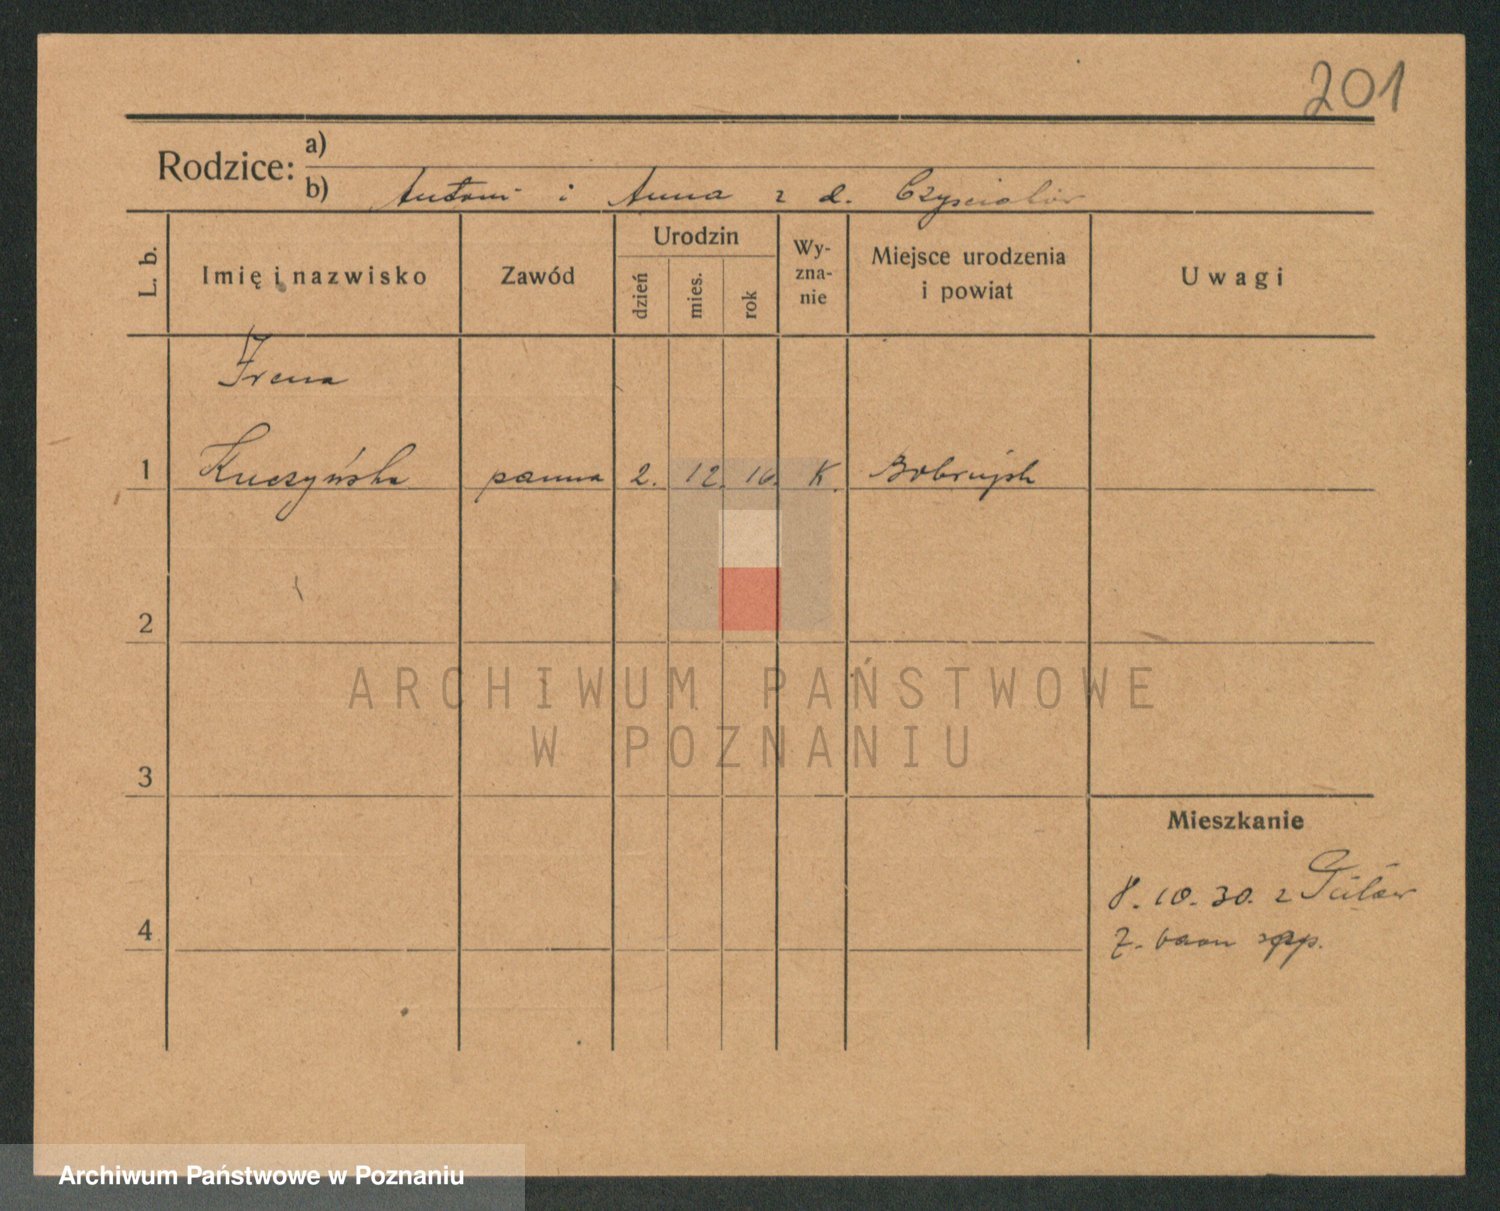 201
Rodzice: a)
b) Antoni i Anna z d.
L. b.
Imię i nazwisko
Zawód
Urodzin
dzień
mies.
rok
Wy-
zna-
nie
Miejsce urodzenia
i powiat
Uwagi
Irena
1 Kuczyńska panna 2. 12. 16. K. Bobrujsk
2
3
4
Mieszkanie
8. 10. 30. z
7. baon
ARCHIWUM PAŃSTWOWE
W POZNANIU
Archiwum Państwowe w Poznaniu